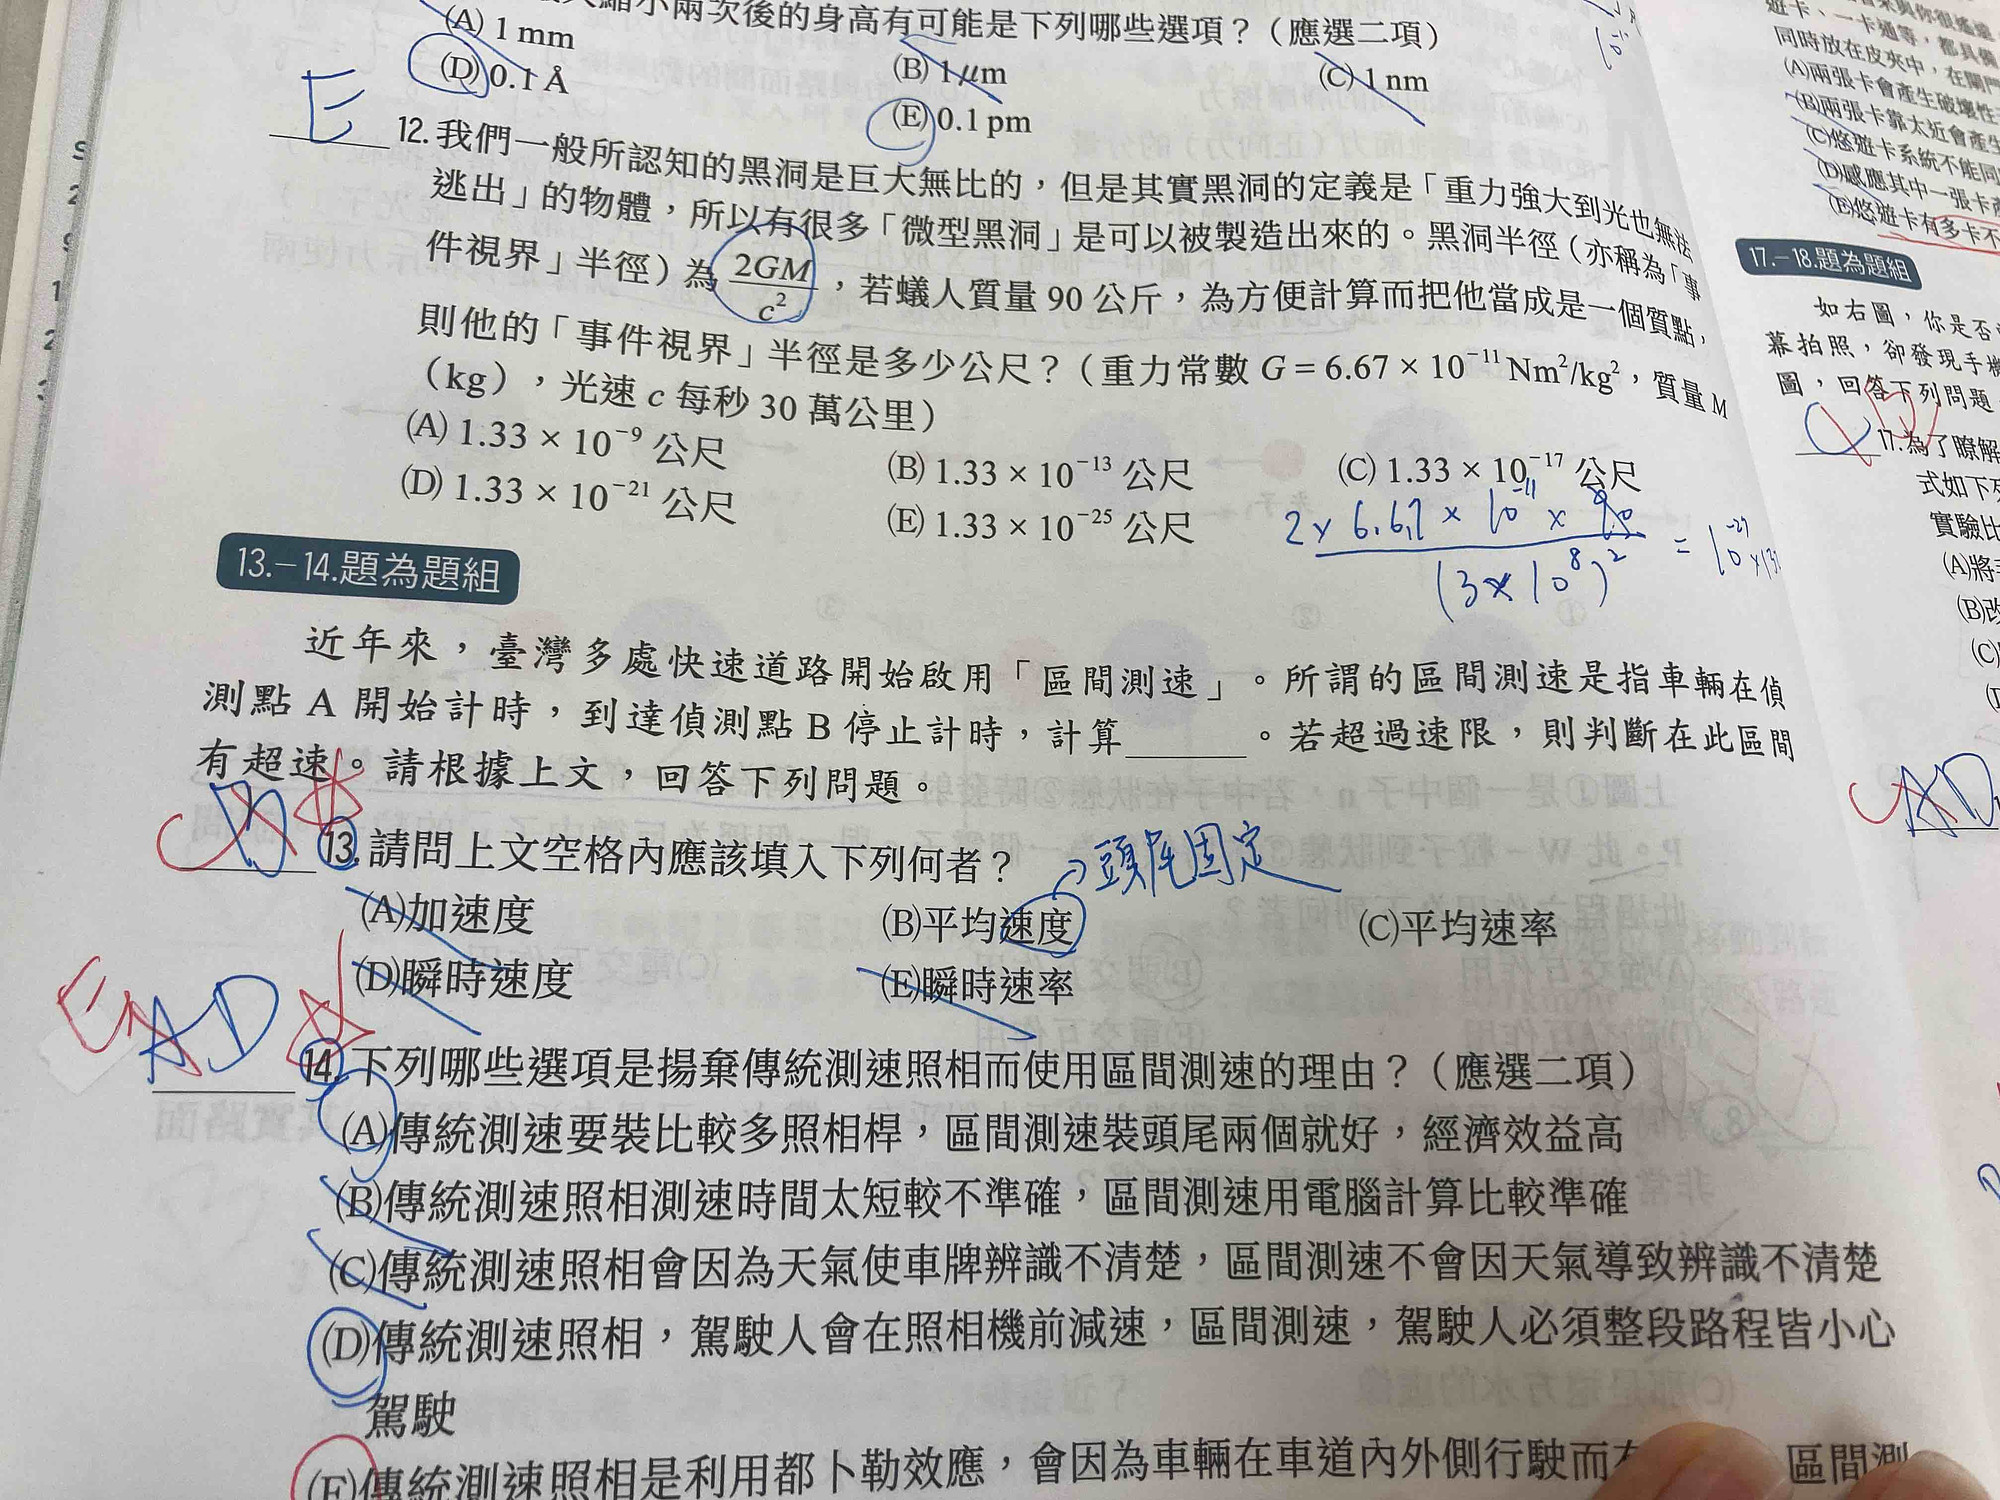 縮小兩次後的身高有可能是下列哪些選項？（應選二項）
(A) 1 mm
(B) 1 μm
(C) 1 nm
(D) 0.1 Å
(E) 0.1 pm
E
12. 我們一般所認知的黑洞是巨大無比的，但是其實黑洞的定義是「重力強大到光也無法
逃出」的物體，所以有很多「微型黑洞」是可以被製造出來的。黑洞半徑（亦稱為「事
件視界」半徑）為 2GM/c²，若蟻人質量 90 公斤，為方便計算而把他當成是一個質點，
則他的「事件視界」半徑是多少公尺？（重力常數 G = 6.67 × 10⁻¹¹ Nm²/kg²，質量 M
（kg），光速 c 每秒 30 萬公里）
(A) 1.33 × 10⁻⁹ 公尺
(B) 1.33 × 10⁻¹³ 公尺
(C) 1.33 × 10⁻¹⁷ 公尺
(D) 1.33 × 10⁻²¹ 公尺
(E) 1.33 × 10⁻²⁵ 公尺
2 × 6.67 × 10⁻¹¹ × 90
(3×10⁸)²
13.－14.題為題組
近年來，臺灣多處快速道路開始啟用「區間測速」。所謂的區間測速是指車輛在偵
測點 A 開始計時，到達偵測點 B 停止計時，計算______。若超過速限，則判斷在此區間
有超速。請根據上文，回答下列問題。
13. 請問上文空格內應該填入下列何者？
頭尾固定
(A)加速度
(B)平均速度
(C)平均速率
(D)瞬時速度
(E)瞬時速率
E AD
14. 下列哪些選項是揚棄傳統測速照相而使用區間測速的理由？（應選二項）
(A)傳統測速要裝比較多照相桿，區間測速裝頭尾兩個就好，經濟效益高
(B)傳統測速照相測速時間太短較不準確，區間測速用電腦計算比較準確
(C)傳統測速照相會因為天氣使車牌辨識不清楚，區間測速不會因天氣導致辨識不清楚
(D)傳統測速照相，駕駛人會在照相機前減速，區間測速，駕駛人必須整段路程皆小心
駕駛
(E)傳統測速照相是利用都卜勒效應，會因為車輛在車道內外側行駛而 區間測
遊卡、一卡通等，都具備
同時放在皮夾中，在閘門
(A)兩張卡會產生破壞性
(B)兩張卡靠太近會產生
(C)悠遊卡系統不能同
(D)感應其中一張卡產
(E)悠遊卡有多卡不
17.－18.題為題組
如右圖，你是否
幕拍照，卻發現手機
圖，回答下列問題
17. 為了瞭解
式如下列
實驗比
(A)將
(B)改
(C)
AD